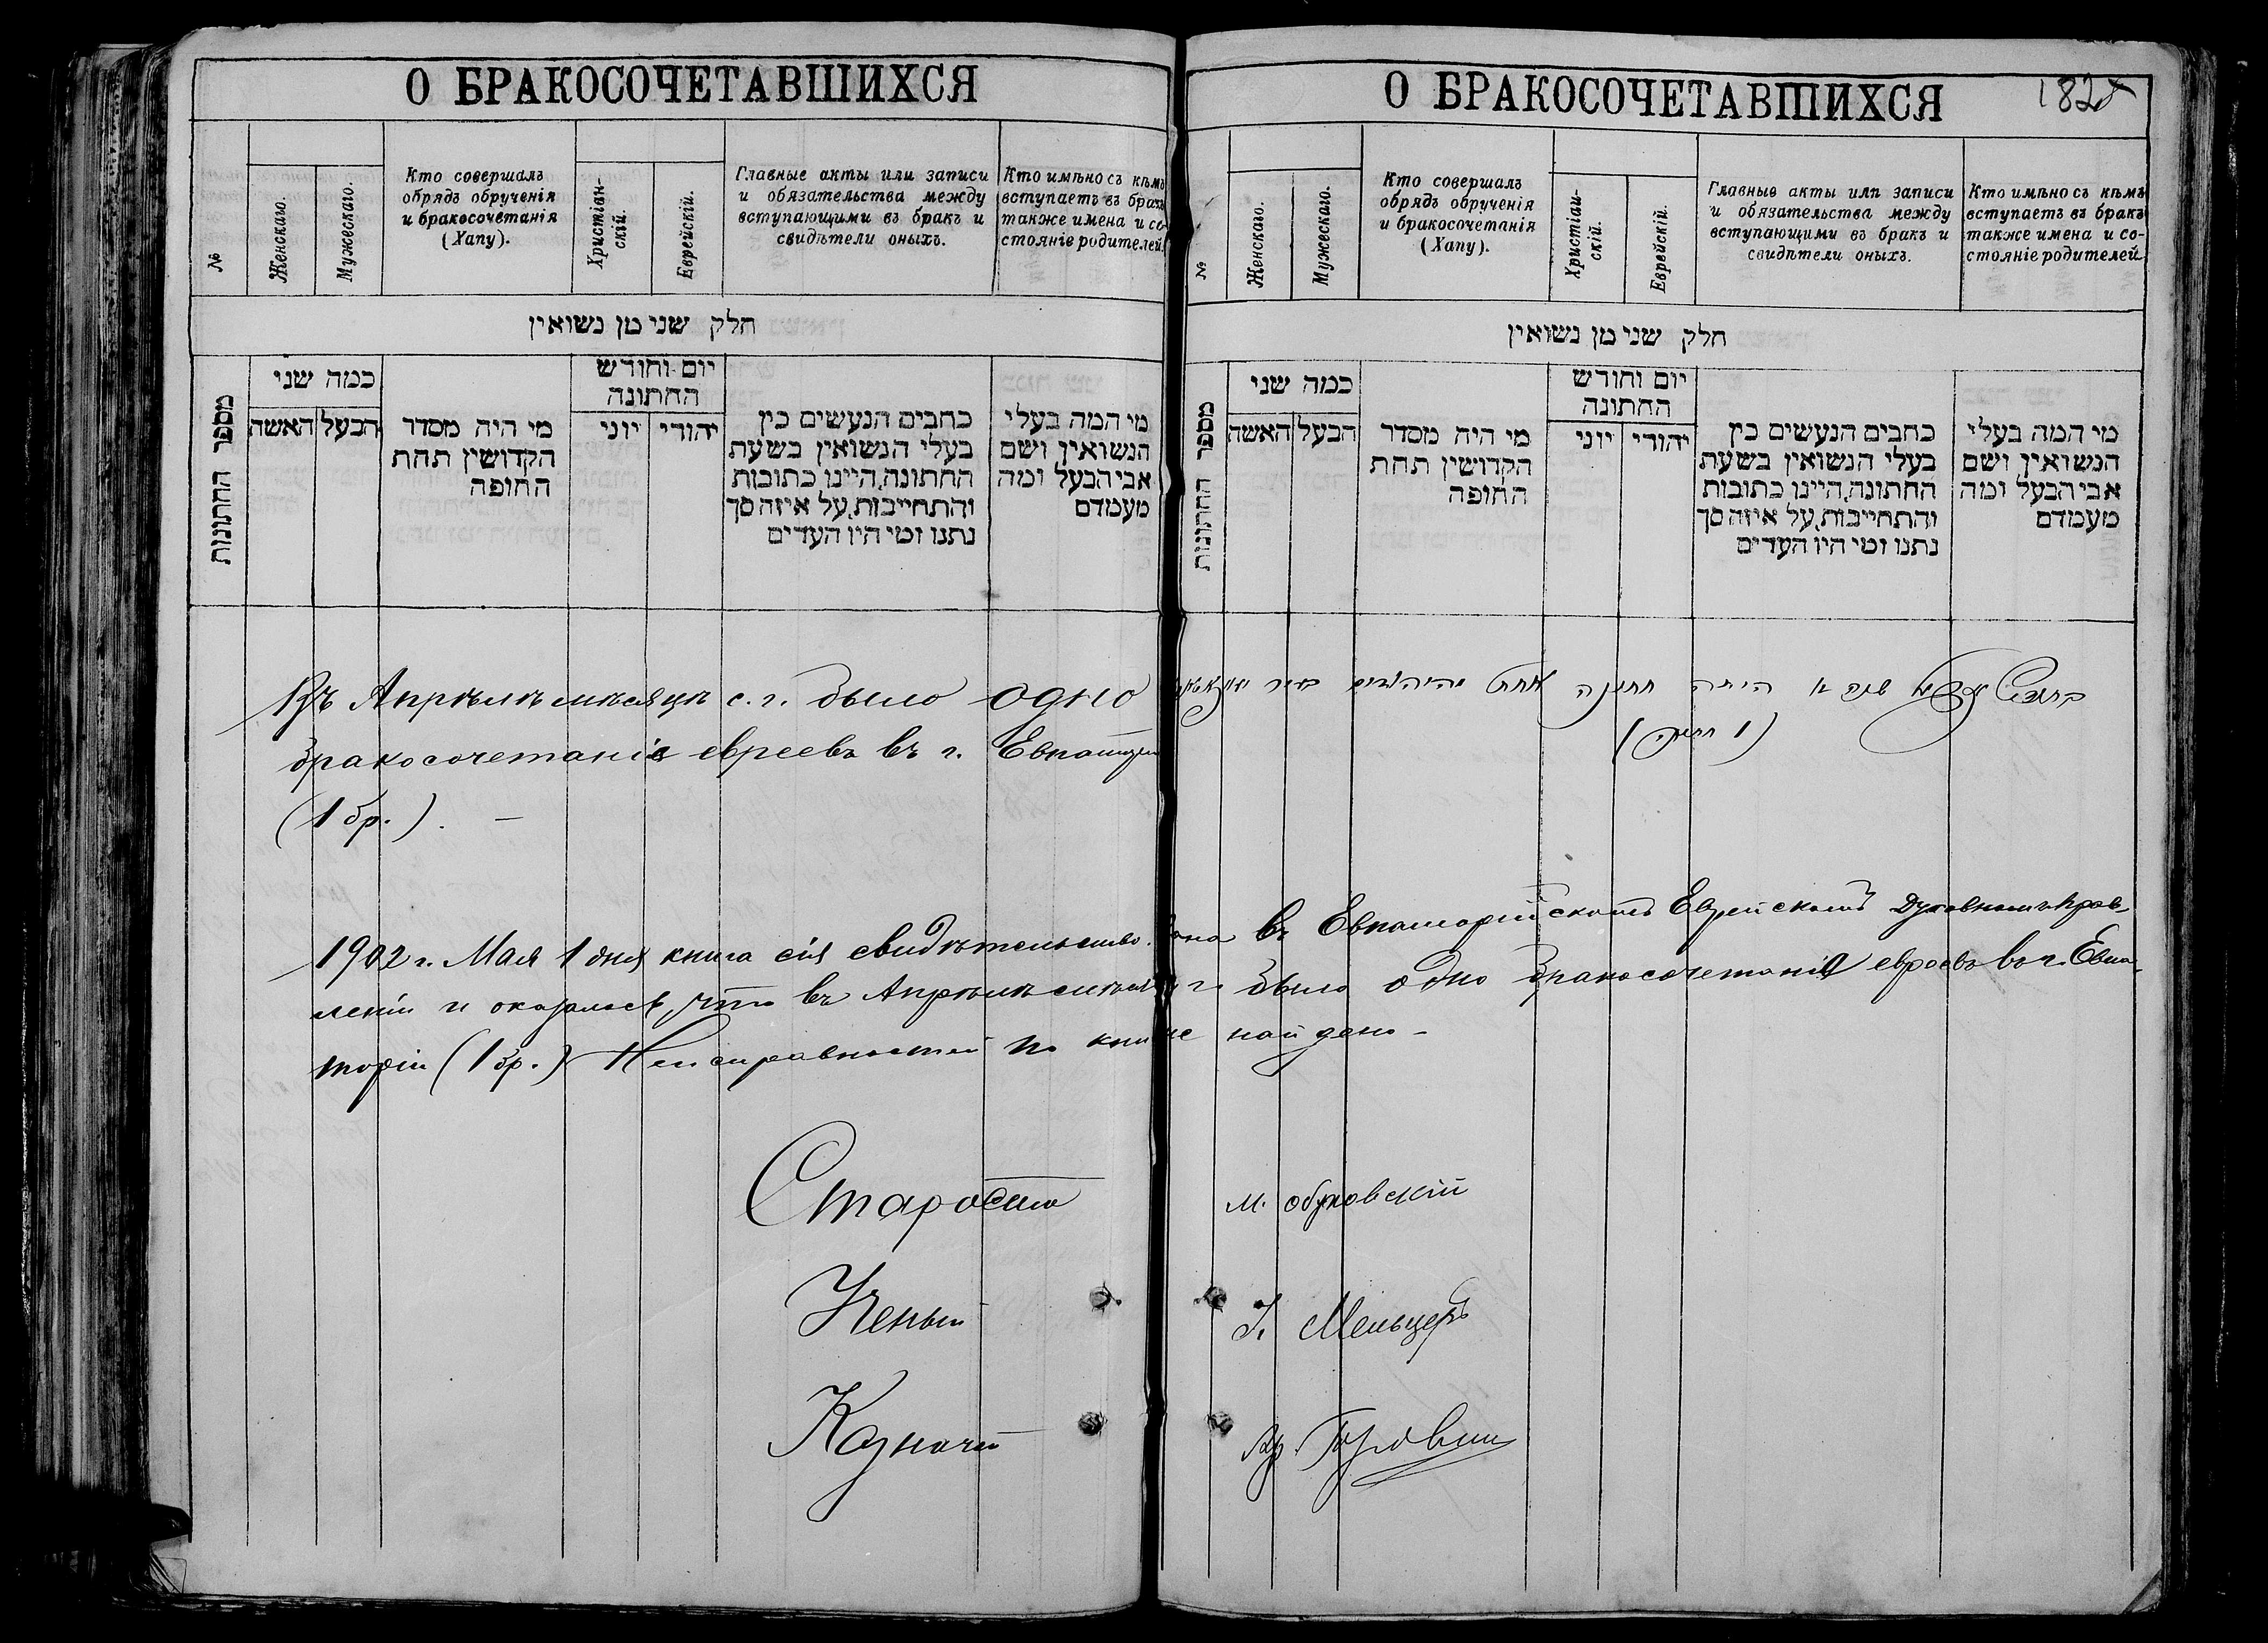 О БРАКОСОЧЕТАВШИХСЯ
№
Женскаго.
Мужескаго.
Кто совершалъ
обрядъ обрученія
и бракосочетанія
(Хапу).
Христіан-
скій.
Еврейскій.
Главные акты или записи
и обязательства между
вступающими въ бракъ и
свидѣтели оныхъ.
Кто имѣно съ кѣмъ
вступаетъ въ бракъ
также имена и со-
стояніе родителей.
חלק שני מן נשואין
מספר החתונות
כמה שני
האשה
הבעל
מי היה מסדר
הקדושין תחת
החופה
יום וחודש
החתונה
יוני
יהודי
כתבים הנעשים בין
בעלי הנשואין בשעת
החתונה, היינו כתובות
והתחייבות, על איזה סך
נתנו ומי היו העדים
מי המה בעלי
הנשואין ושם
אבי הבעל ומה
מעמדם
Въ Апрѣлѣ мѣсяцѣ с. г. было одно
бракосочетаніе евреевъ въ г. Евпаторіи
(1 бр.). —
О БРАКОСОЧЕТАВШИХСЯ
182
№
Женскаго.
Мужескаго.
Кто совершалъ
обрядъ обрученія
и бракосочетанія
(Хапу).
Христіан-
скій.
Еврейскій.
Главные акты или записи
и обязательства между
вступающими въ бракъ и
свидѣтели оныхъ.
Кто имѣно съ кѣмъ
вступаетъ въ бракъ
также имена и со-
стояніе родителей.
חלק שני מן נשואין
מספר החתונות
כמה שני
האשה
הבעל
מי היה מסדר
הקדושין תחת
החופה
יום וחודש
החתונה
יוני
יהודי
כתבים הנעשים בין
בעלי הנשואין בשעת
החתונה, היינו כתובות
והתחייבות, על איזה סך
נתנו ומי היו העדים
מי המה בעלי
הנשואין ושם
אבי הבעל ומה
מעמדם
היתה חתונה אחת
1902 г. Мая 1 дня книга сія свидѣтельствована въ Евпаторійскомъ Еврейскомъ Духовномъ Прав-
леніи и оказалось, что въ Апрѣлѣ мѣсяцѣ г. было одно бракосочетаніе евреевъ въ г. Евпа-
торіи (1 бр.) Неисправностей по книге найдено —
Староста М. Обуховскій
Ученый І. Мельцеръ
Казначей